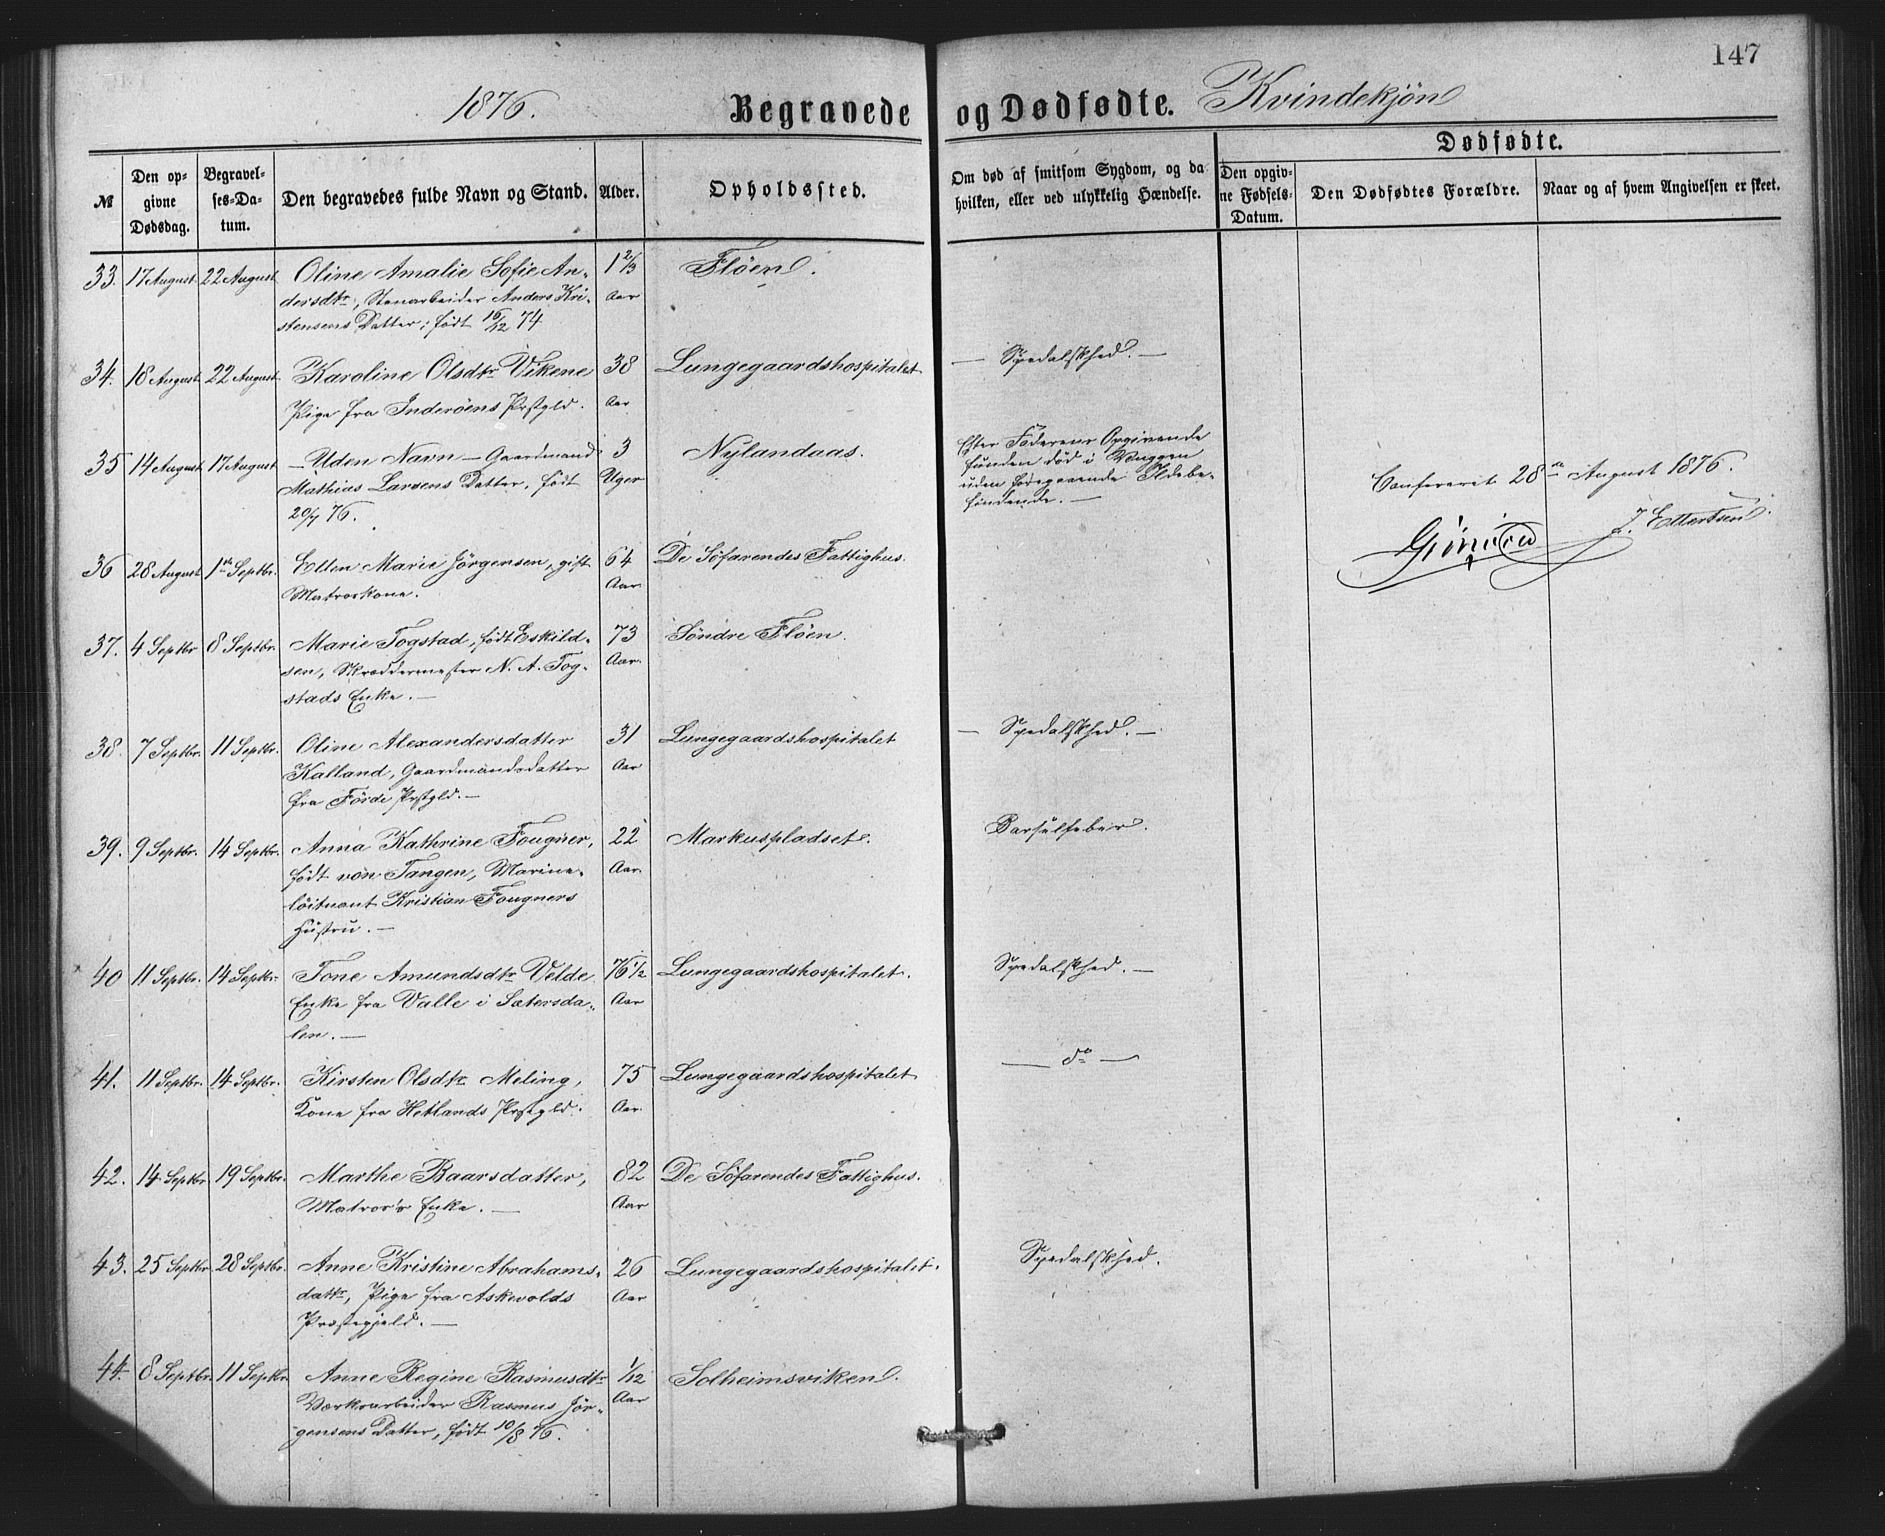 147
1876. Begravede og Dødfødte. Kvindekjøn
№
Den opgivne Dødsdag.
Begravelses-Datum.
Den begravedes fulde Navn og Stand.
Alder.
Opholdssted.
Om død af smitsom Sygdom, og da hvilken, eller ved ulykkelig Hændelse.
Dødfødte.
Den opgivne Fødsels-Datum.
Den Dødfødtes Forældre.
Naar og af hvem Angivelsen er skeet.
33. 17 August 22 August Oline Amalie Sofie An- 1 2/3 Fløen.
dersdtr, Stenarbeider Anders Kri- Aar
stensens Datter; født 16/12 74
34. 18 August 22 August Karoline Olsdtr Vikene 38 Lungegaardshospitalet — Spedalskhed. —
Pige fra Inderøens Prstgld. Aar
35 14 August 17 August — Uden Navn — Gaardmand 3 Nylandaas. Efter Faderens Opgivende
Mathias Larsens Datter, født Uger funden død i Vuggen
20/7 76. uden foregaaende Ildebe-
findende. —
Confereret 28de August 1876.
J. Ellertsen
36 28 August 1ste Septbr. Ellen Marie Jørgensen, gift 64 De Søfarendes Fattighus.
Matroskone. Aar
37. 4 Septbr 8 Septbr. Marie Togstad, født Eskild- 73 Søndre Fløen.
sen, Skræddermester N. A. Tog- Aar.
stads Enke. —
38. 7 Septbr. 11 Septbr. Oline Alexandersdatter 31 Lungegaardshospitalet — Spedalskhed. —
Kalland, Gaardmandsdatter Aar
fra Førde Prstgld. —
39. 9 Septbr. 14 Septbr. Anna Kathrine Fougner, 22 Markuspladset. Barselfeber.
født von Tangen, Marine- Aar.
løitnant Kristian Fougners
Hustru. —
40 11 Septbr. 14 Septbr. Tone Amundsdtr Velde 76 1/2 Lungegaardshospitalet. Spedalskhed. —
Enke fra Valle i Sætersda- Aar
len. —
41. 11 Septbr. 14 Septbr. Kirsten Olsdtr Meling, 75 Lungegaardshospitalet — do —
Kone fra Hetlands Prstgld. Aar.
42. 14 Septbr 19 Septbr. Marthe Baarsdatter, 82 De Søfarendes Fattighus.
Matros's Enke. — Aar
43. 25 Septbr 28 Septbr. Anne Kristine Abrahams- 26 Lungegaardshospitalet. Spedalskhed.
datr, Pige fra Askevolds Aar
Præstegjeld. —
44. 8 Septbr. 11 Septbr. Anne Regine Rasmusdtr 1/12 Solheimsviken.
Værksarbeider Rasmus Jør- Aar
gensens Datter, født 10/8 76.